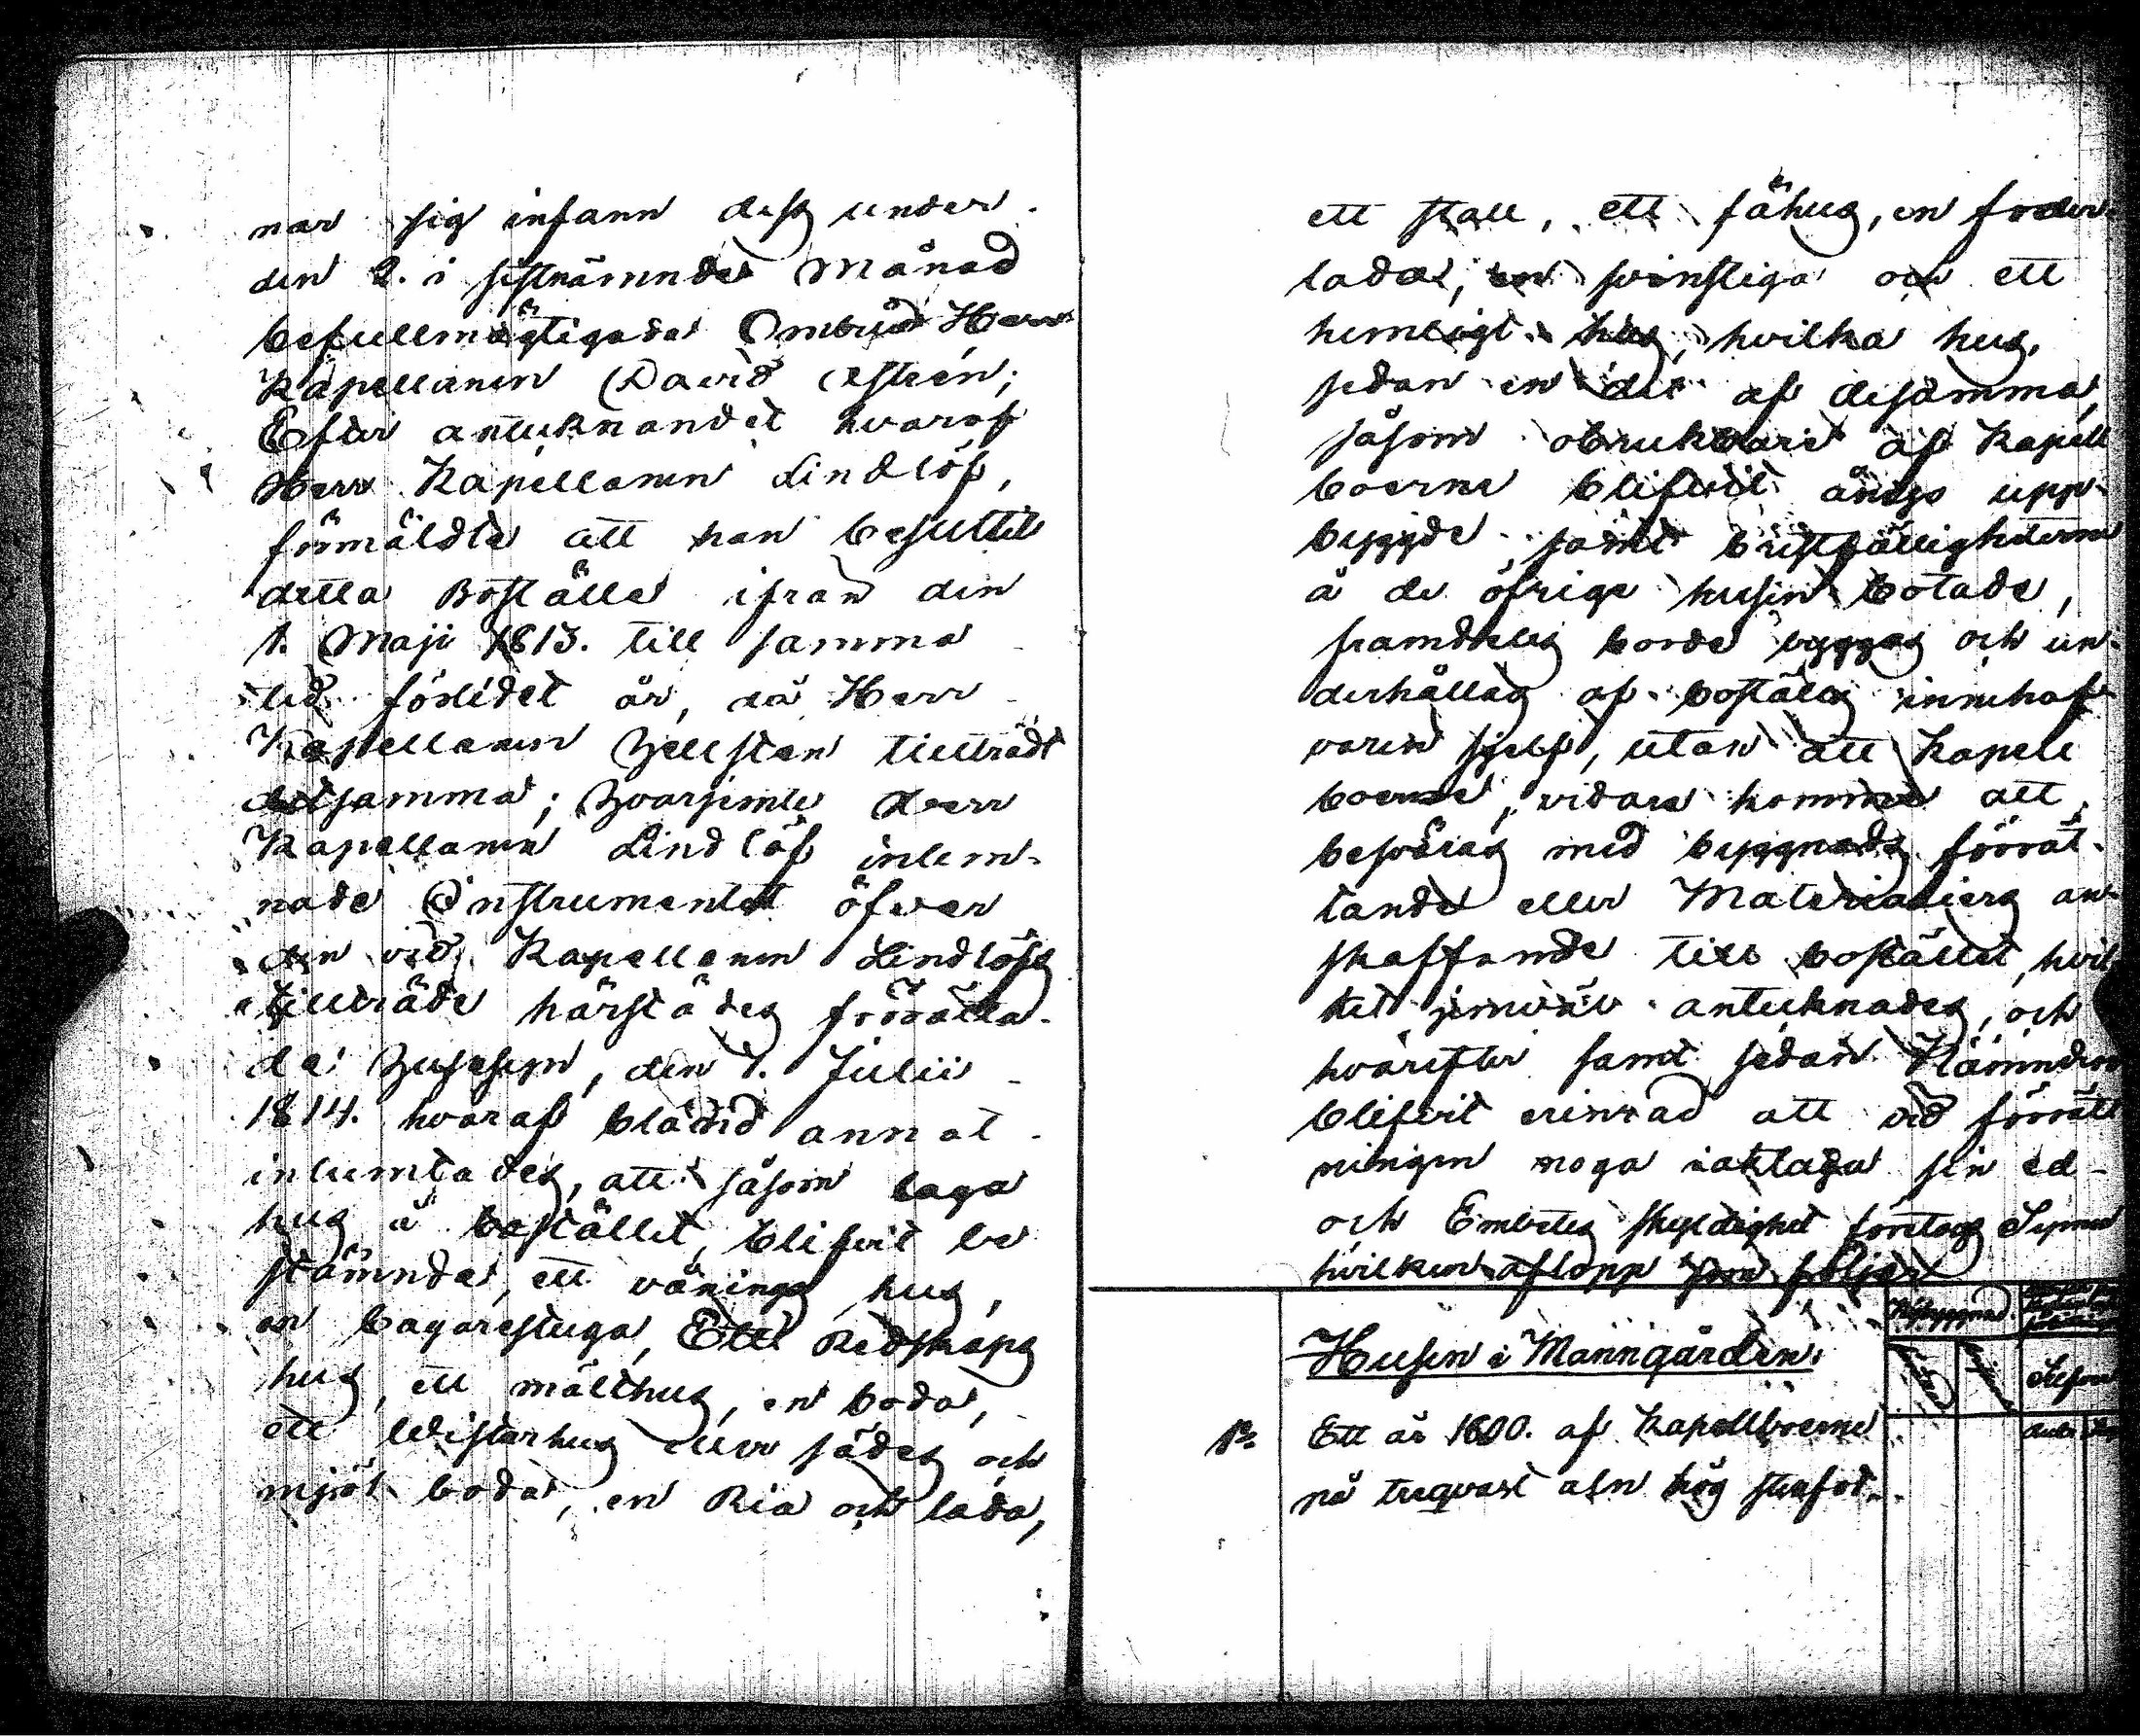 nar sig infann dess under
den 2. i sistnämnde Månad
befullmägtigade Ombud Herr
Kapellanen David
Efter antecknandet hvaraf
Herr Kapellanen Lindlöf,
förmäldte att han besuttit
detta Boställe ifrån den
1. Maji 1813. till samma
tid förledet år, då Herr
Kapellanen Hellsten tillträdt
detsamma; Hvarjemte Herr
Kapellanen Lindlöf inlem-
nade Instrumentet öfver
den vid Kapellanen Lindlöfs
tillträde härstädes förrätta-
de Husesyn, den 1. Julii
1814. hvaraf bland annat
inhemtades, att såsom laga
hus å bostället, blifvit be
stämnda, ett vånings hus,
en bagarestuga, Ett Redskaps
hus, ett mälthus, en boda,
ett Wistarhus eller sädes och
mjöl boda, en Ria och lada,
ett stall, ett fähus, en foder
lada, en svinstiga och ett
hemligt hus, hvilka hus,
sedan en del af desamma,
såsom obrukbare af Kapell
boerne blifvit ånyo upp-
bygde, samt bristfälligheterne
å de öfrige husen botade,
framdeles borde byggas och un-
derhållas af boställs innehaf
varen sjelf, utan att Kapell
boerne, vidare komme att
besväras med byggnads förrät-
tande eller Materialiers an-
skaffande till bostället, hvil
ket jemväl antecknades, och
hvarefter samt sedan Nämnden
blifvit erinrad att vid förrätt
ningen noga iakttaga sin ed-
och Embetes skyldighet företogs Synen
hvilken aflopp som följer
Husen i Manngården.
1o Ett år 1800. af Kapellboerne
på tuqvart aln hög stenfot